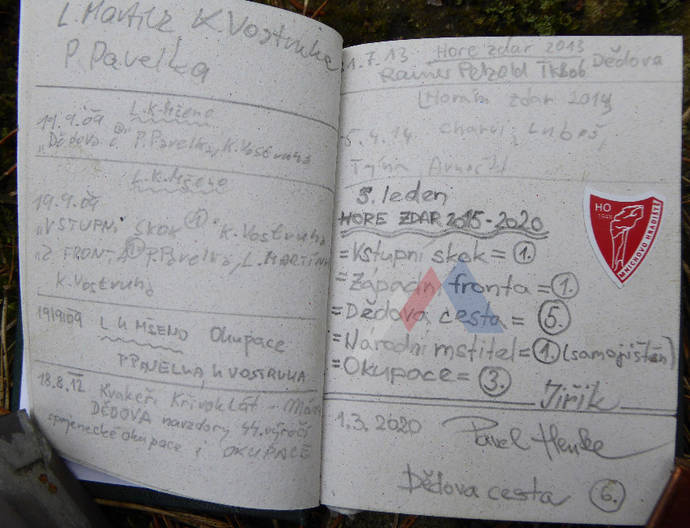 L. Martin K Vostruha
P. Pavelka
L.K. Mšeno
19.9.09
"Dědova č" P. Pavelka, K. Vostruha
L.K. Mšeno
19.9.09
"VSTUPNÍ SKOK" ① K. Vostruha
"Z FRONTA ① P. Pavelka, L. MARTIN
K. Vostruha
19/9/09 L K MŠENO Okupace
P PAVELKA, K VOSTRUHA
18.8.12 Kvakeři Křivoklát -
DĚDOVA navzdory 44. výročí
spojenecké okupace i OKUPACE
1.7.13 Hore zdar 2013
Rainer Petzold Dědova
Horám zdar 2014
5.4.14 Luboš,
Týna,
5. leden
HORE ZDAR 2015-2020
=Vstupní skok= ①.
=Západní fronta=①.
=Dědova cesta= ⑤.
=Národní mstitel=①.(samojištěn)
=Okupace= ③.
Jiřík
HO
MNICHOVO HRADIŠTĚ
1.3.2020 Pavel Henke
Dědova cesta ⑥.